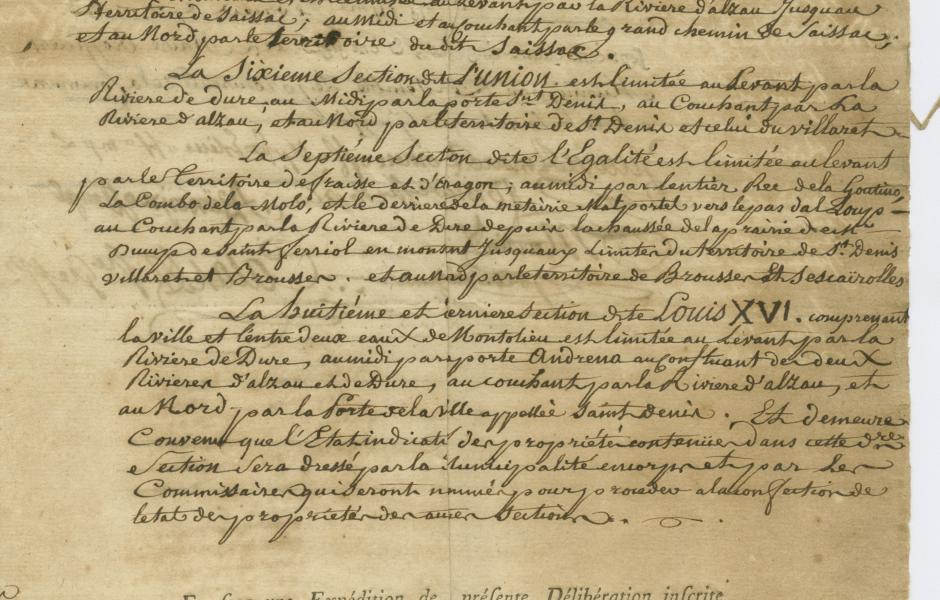 et reconnue au levant par la Riviere d'alzau Jusquau
Territoire de Saissac; au midi et au Couchant par le grand chemin de Saissac,
et au Nord par le territoire du dit Saissac.
La Sixieme Section dit L'union est limitée au Levant par la
Riviere de dure, au Midi par la porte St Denis, au Couchant par La
Riviere d'alzau, et au Nord par le territoire de St Denis et celui du villaret
La Septiéme Section dite l'Egalité est limitée au levant
par le Territoire de fraisse et d'aragon; au midi par lentier Rec de la Goutino,
La Combo de la Molo, et le derriere de la metairie Malportel vers le pas dal Loup
au Couchant par la Riviere de Dure depuis la chaussée de la prairie de
de Saint ferriol en montant Jusquaux Limites du territoire de St Denis
villaret et Brousses. et au Nord par le territoire de Brousses Et Sescairolles
La huitiéme et derniere Section dite Louis XVI. comprenant
la ville et l'entre deux eaux de Montolieu est limitée au Levant par la
Riviere de Dure, au midi par porte Andrena au Confluant des deux
Rivieres d'alzau et de Dure, au couchant par la Riviere d'alzau, et
au Nord, par la Porte de la ville appellée Saint Denis. Et demeure
Convenu que l'Etat indicatif des propriétés contenues dans cette dre
Section sera dressé par la Municipalité en corps et par Les
Commissaires qui seront nommés pour proceder a la confection de
letat des propriétés des autres Sections.
Expédition de présente Délibération inscrite